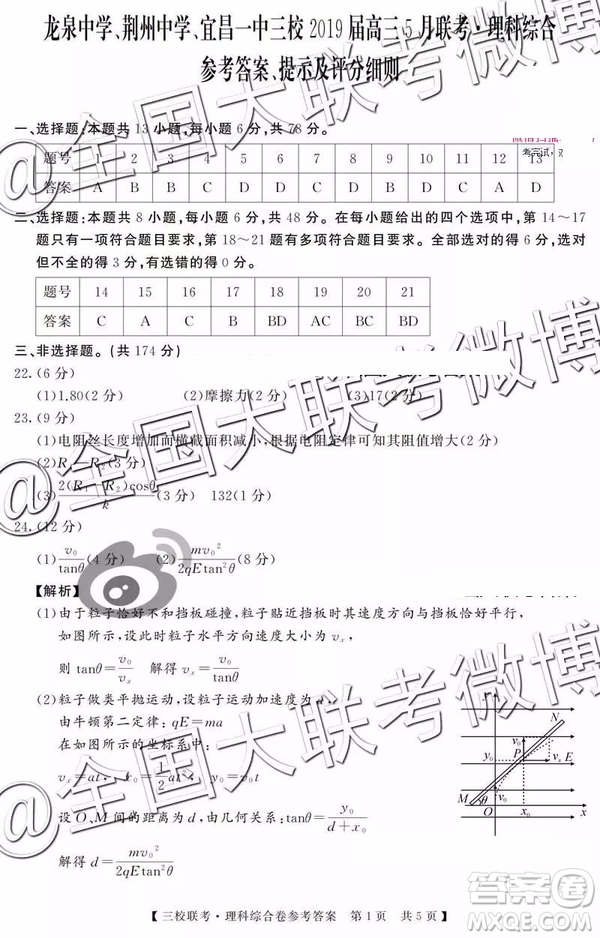 龙泉中学、荆州中学、宜昌一中三校 2019 届高三 5 月联考·理科综合
参考答案、提示及评分细则
一、选择题:本题共 13 小题,每小题 6 分,共 78 分。
考完试,
题号 1 2 3 4 5 6 7 8 9 10 11 12 13
答案 A B D C D D D A D
二、选择题:本题共 8 小题,每小题 6 分,共 48 分。在每小题给出的四个选项中,第 14~17
题只有一项符合题目要求,第 18~21 题有多项符合题目要求。全部选对的得 6 分,选对
但不全的得 3 分,有选错的得 0 分。
题号 14 15 16 17 18 19 20 21
答案 C A C B BD AC BC BD
三、非选择题。(共 174 分)
22.(6 分)
(1)1.80(2分) (2)摩擦力(2分) (3)17(2分)
23.(9 分)
(1)电阻丝长度增加而横截面积减小,根据电阻定律可知其阻值增大(2 分)
(2)R₁-R₂(3 分)
(3)2(R₁-R₂)cosθ/k(3 分) 132(1 分)
24.(12 分)
(1)v₀/tanθ(4 分) (2)mv₀²/2qEtan²θ(8 分)
【解析】
(1)由于粒子恰好不和挡板碰撞,粒子贴近挡板时其速度方向与挡板恰好平行,
如图所示,设此时粒子水平方向速度大小为 vₓ,
则 tanθ=v₀/vₓ 解得 vₓ=v₀/tanθ
(2)粒子做类平抛运动,设粒子运动加速度为 a,
由牛顿第二定律:qE=ma
在如图所示的坐标系中:
vₓ=at,x₀=1/2at²,y₀=v₀t
设 O、M 间的距离为 d,由几何关系:tanθ=y₀/d+x₀
解得 d=mv₀²/2qEtan²θ
y N v₀ y₀ P vₓ E v₀ M θ O x₀ x
【三校联考·理科综合卷参考答案 第 1 页 共 5 页】
@全国大联考微博
@全国大联考微博
@全国大联考微博
答案圈
MXQE.COM